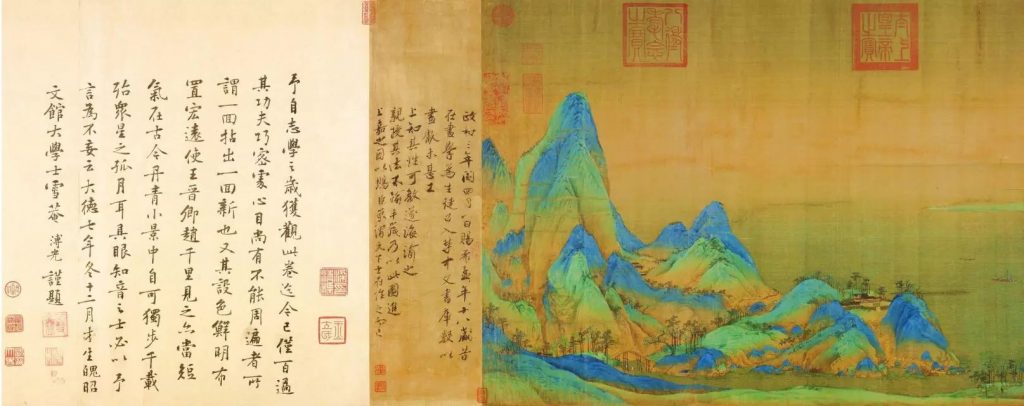 太上皇帝之寶
八徵耄念之寶
政和三年閏四月一日賜希孟年十八歲昔
在畫學為生徒召入禁中文書庫數以
畫獻未甚工
上知其性可教遂誨諭之
親授其法不踰半歲乃以此圖進
上嘉之因以賜臣京謂天下士在作之而已
予自志學之歲獲觀此卷迄今已僅百過
其功夫巧密處心目尚有不能周遍者所
謂一回拈出一回新也又其設色鮮明布
置宏遠使王晉卿趙千里見之亦當短
氣在古今丹青小景中自可獨步千載
殆眾星之孤月耳具眼知音之士必以予
言為不妄云大德七年冬十二月才生魄昭
文館大學士雪菴溥光謹題